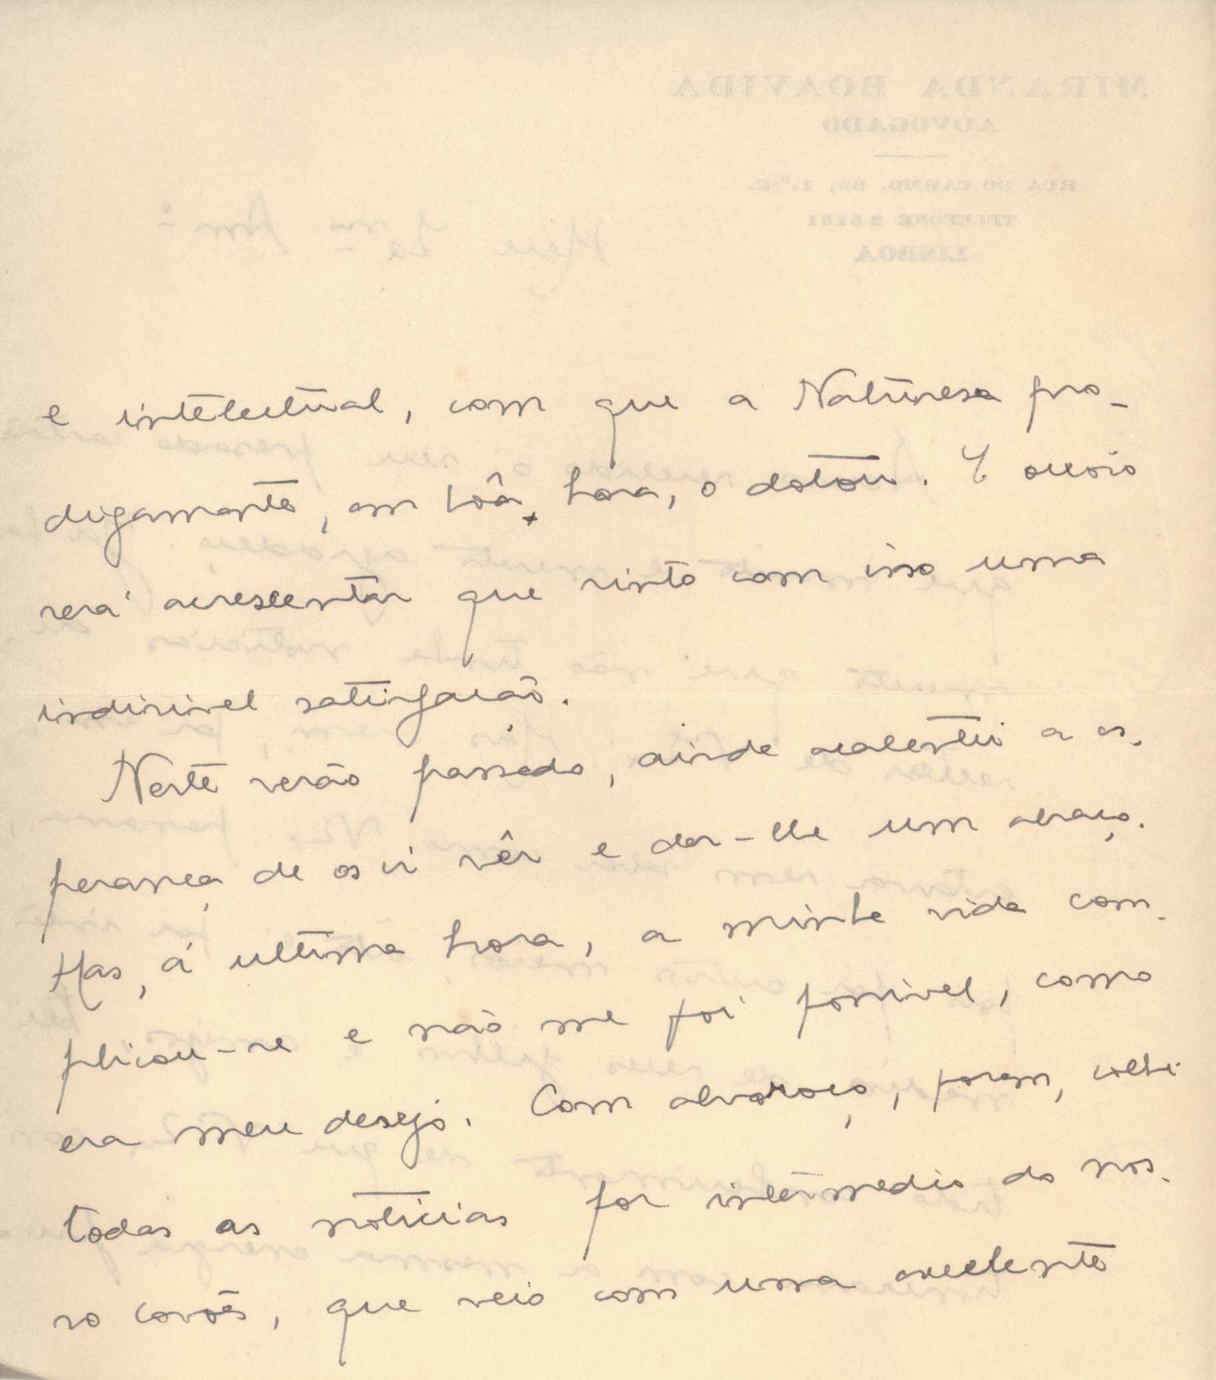 e intelectual, com que a Naturesa pro-
digamente, em bôa hora, o dotou. E ocioso
será acrescentar que sinto com isso uma
indizivel satisfação.
Neste verão passado, ainda acalentei a es-
perança de os ir vêr e dar-lhe um abraço.
Mas, á ultima hora, a minha vida com-
plicou-se e não me foi possivel, como
era meu desejo. Com alvoroço, porem, colhi
todas as noticias por intermedio do nos-
so              , que veio com uma excelente
MIRANDA BOAVIDA
ADVOGADO
RUA DO CARMO,
TELEFONE
LISBOA
Meu